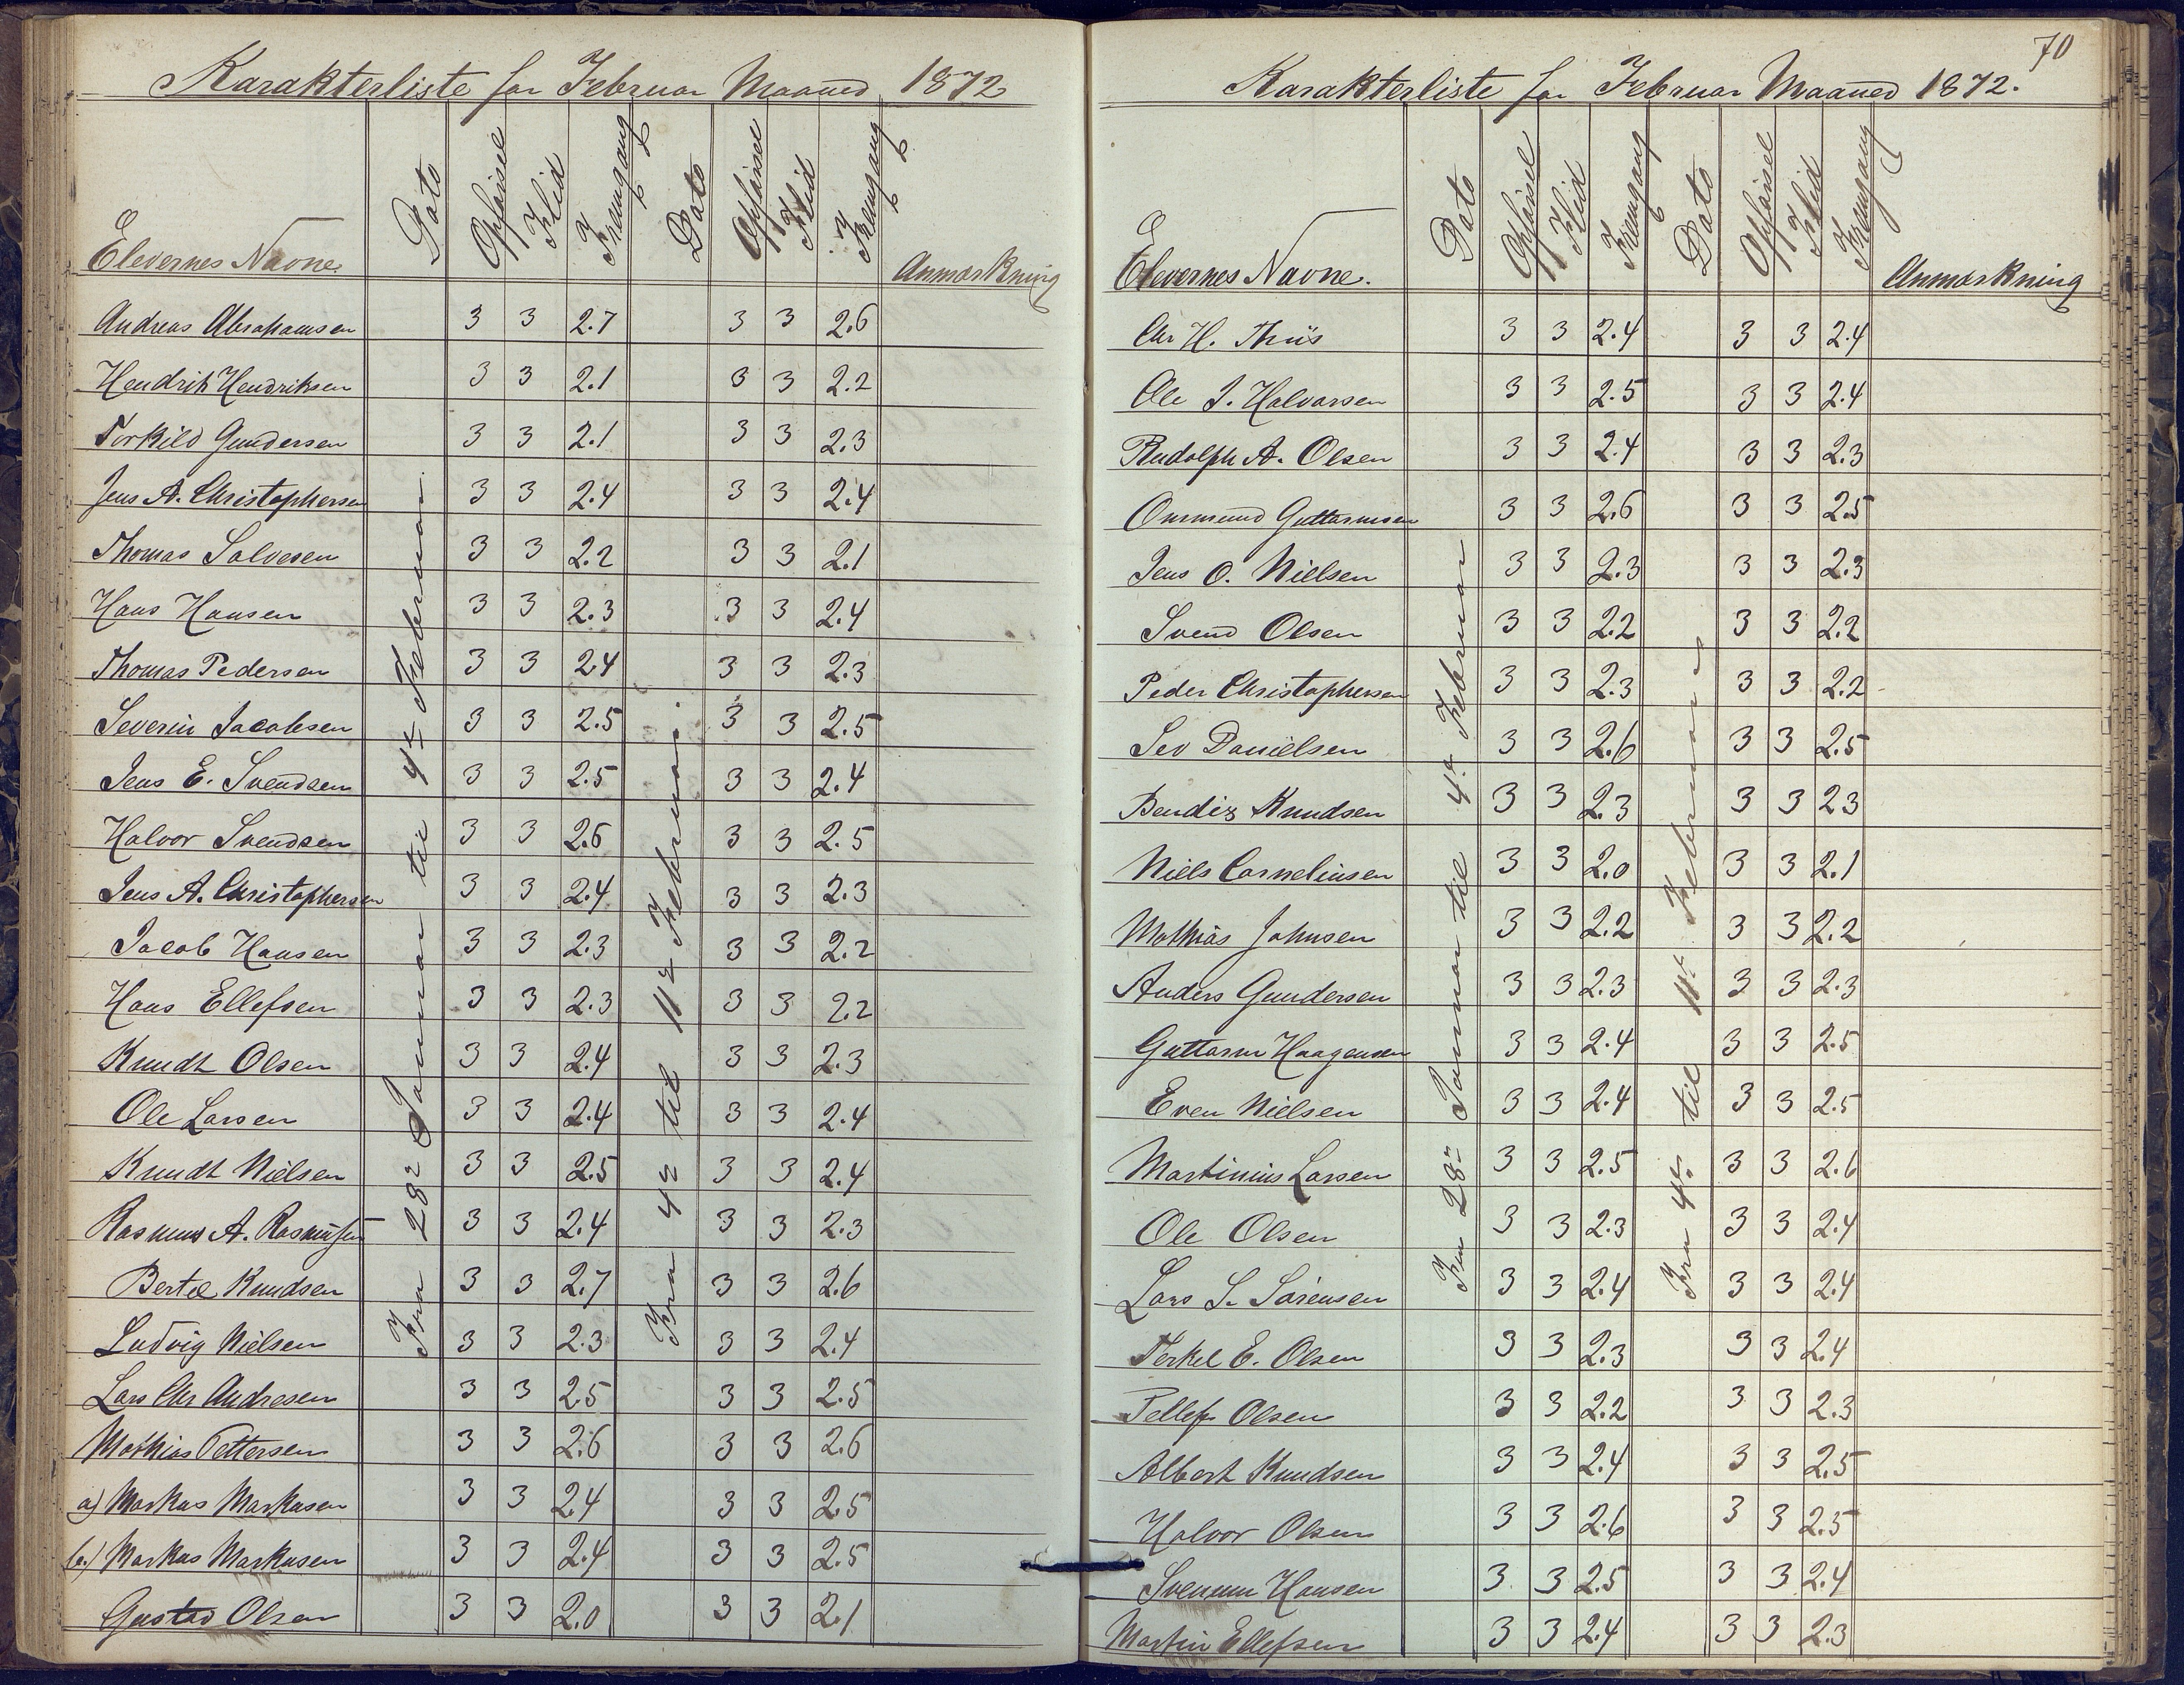 Karakterliste for Februar Maaned 1872
Elevernes Navne. Dato Opförsel Flid Fremgang Dato Opförsel Flid Fremgang Anmærkning
Fra 28de Januar til 4de Februar
Fra 4de til 11te Februar.
Andreas Abrahamsen 3 3 2.7 3 3 2.6
Hendrik Hendriksen 3 3 2.1 3 3 2.2
Torkild Gundersen 3 3 2.1 3 3 2.3
Jens A. Christophersen 3 3 2.4 3 3 2.4
Thomas Salvesen 3 3 2.2 3 3 2.1
Hans Hansen 3 3 2.3 3 3 2.4
Thomas Pedersen 3 3 2.4 3 3 2.3
Severin Jacobsen 3 3 2.5 3 3 2.5
Jens E. Svendsen 3 3 2.5 3 3 2.4
Halvor Svendsen 3 3 2.6 3 3 2.5
Jens A. Christophersen 3 3 2.4 3 3 2.3
Jacob Hansen 3 3 2.3 3 3 2.2
Hans Ellefsen 3 3 2.3 3 3 2.2
Knudt Olsen 3 3 2.4 3 3 2.3
Ole Larsen 3 3 2.4 3 3 2.4
Knudt Nielsen 3 3 2.5 3 3 2.4
Rasmus A. Rasmussen 3 3 2.4 3 3 2.3
Bertel Knudsen 3 3 2.7 3 3 2.6
Ludvig Nielsen 3 3 2.3 3 3 2.4
Lars Chr Andresen 3 3 2.5 3 3 2.5
Mathias Pettersen 3 3 2.6 3 3 2.6
a) Markus Markusen 3 3 2.4 3 3 2.5
b.) Markus Markusen 3 3 2.4 3 3 2.5
Gustav Olsen 3 3 2.0 3 3 2.1
70
Karakterliste for Februar Maaned 1872.
Elevernes Navne. Dato Opförsel Flid Fremgang Dato Opförsel Flid Fremgang Anmærkning
Fra 28de Januar til 4de Februar
Fra 4de til 11te Februar
Chr H. Thiis 3 3 2.4 3 3 2.4
Ole J. Halvorsen 3 3 2.5 3 3 2.4
Rudolph A. Olsen 3 3 2.4 3 3 2.3
Ommund Guttormsen 3 3 2.6 3 3 2.5
Jens O. Nielsen 3 3 2.3 3 3 2.3
Svend Olsen 3 3 2.2 3 3 2.2
Peder Christophersen 3 3 2.3 3 3 2.2
Sev Danielsen 3 3 2.6 3 3 2.5
Bendix Knudsen 3 3 2.3 3 3 2.3
Niels Corneliusen 3 3 2.0 3 3 2.1
Mathias Johnsen 3 3 2.2 3 3 2.2
Anders Gundersen 3 3 2.3 3 3 2.3
Guttorm Haagensen 3 3 2.4 3 3 2.5
Even Nielsen 3 3 2.4 3 3 2.5
Martinius Larsen 3 3 2.5 3 3 2.6
Ole Olsen 3 3 2.3 3 3 2.4
Lars S. Sörensen 3 3 2.4 3 3 2.4
Terkel E. Olsen 3 3 2.3 3 3 2.4
Tellef Olsen 3 3 2.2 3 3 2.3
Albert Knudsen 3 3 2.4 3 3 2.5
Halvor Olsen 3 3 2.6 3 3 2.5
Svenum Hansen 3 3 2.5 3 3 2.4
Martin Ellefsen 3 3 2.4 3 3 2.3